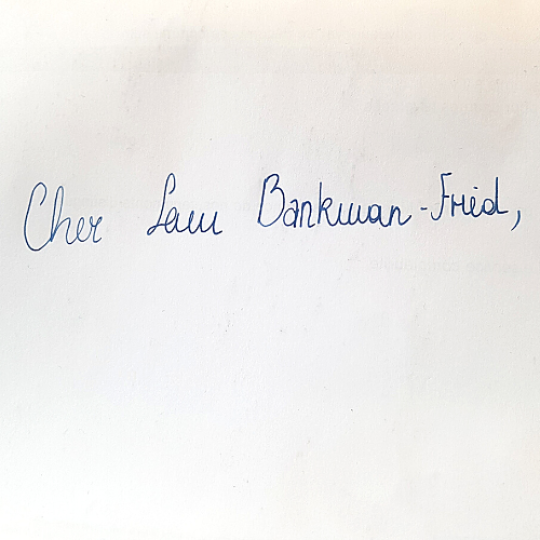 Cher Sam Bankman-Fried,